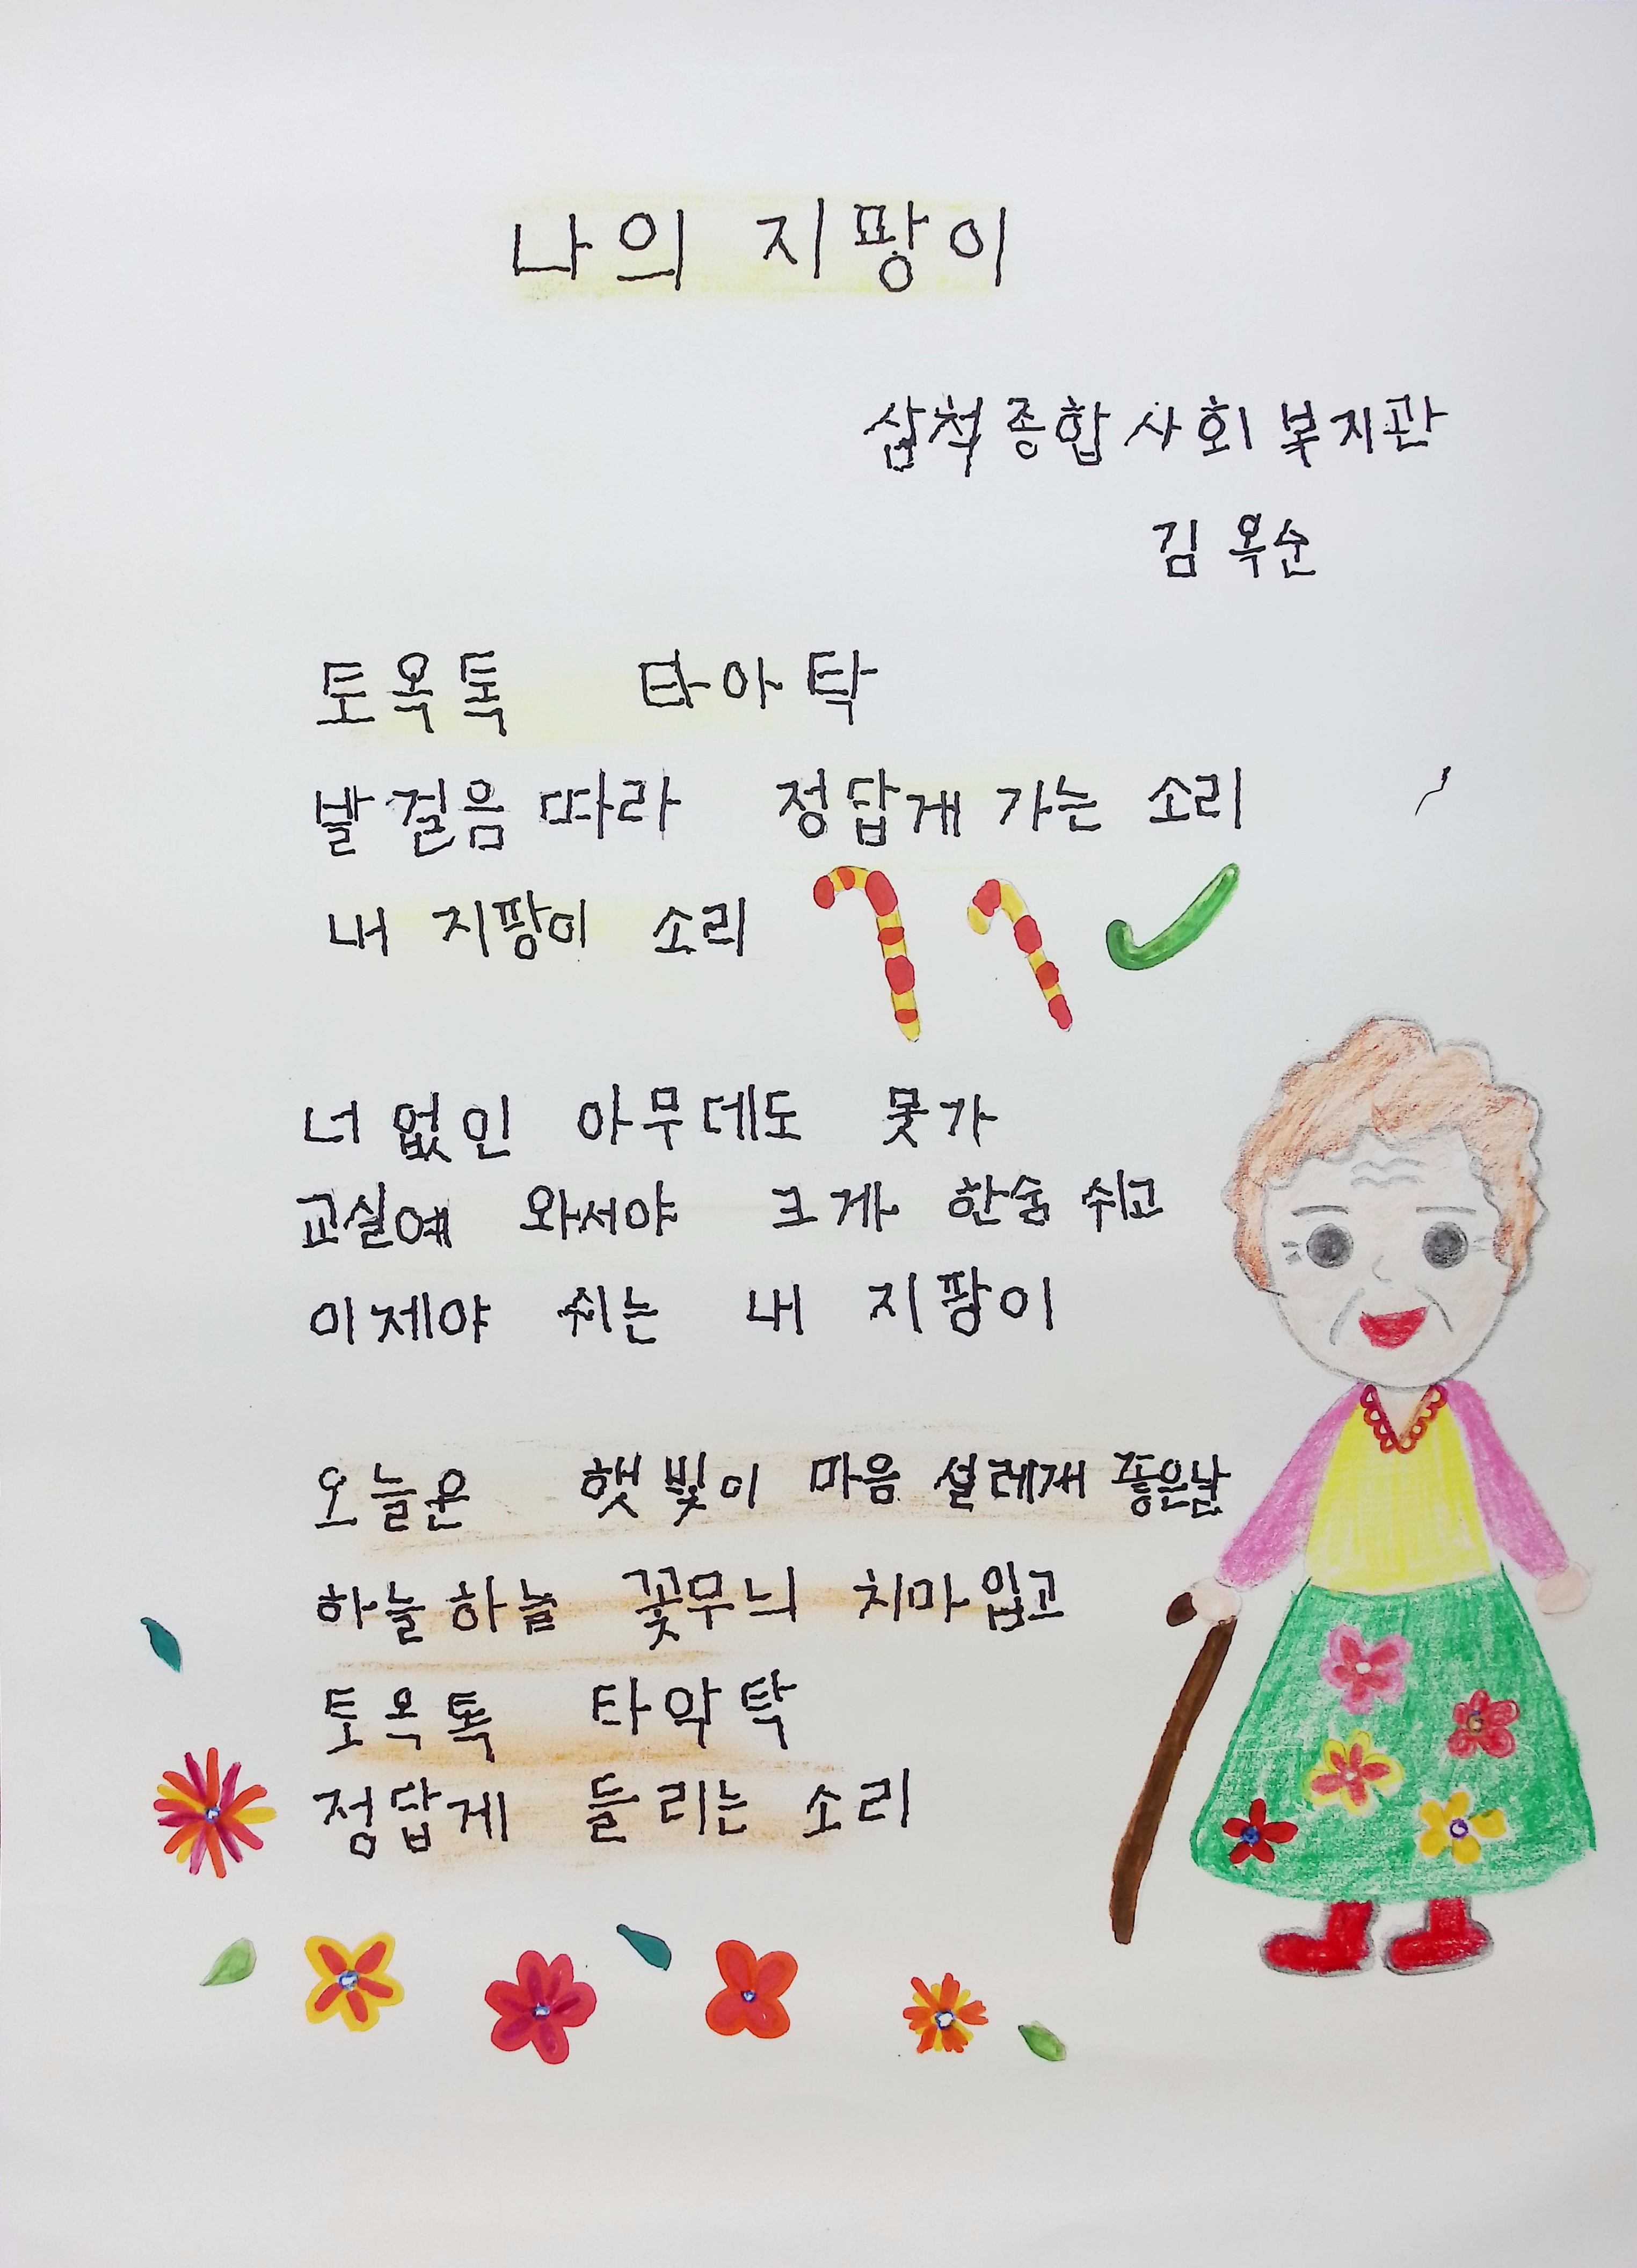 나의 지팡이
삼척종합사회복지관
김옥순
토옥톡 타아탁
발걸음따라 정답게 가는 소리
내 지팡이 소리
너없인 아무데도 못가
교실에 와서야 크게 한숨 쉬고
이제야 쉬는 내 지팡이
오늘은 햇빛이 마음 설레게 좋은날
하늘하늘 꽃무늬 치마입고
토옥톡 타악탁
정답게 들리는 소리